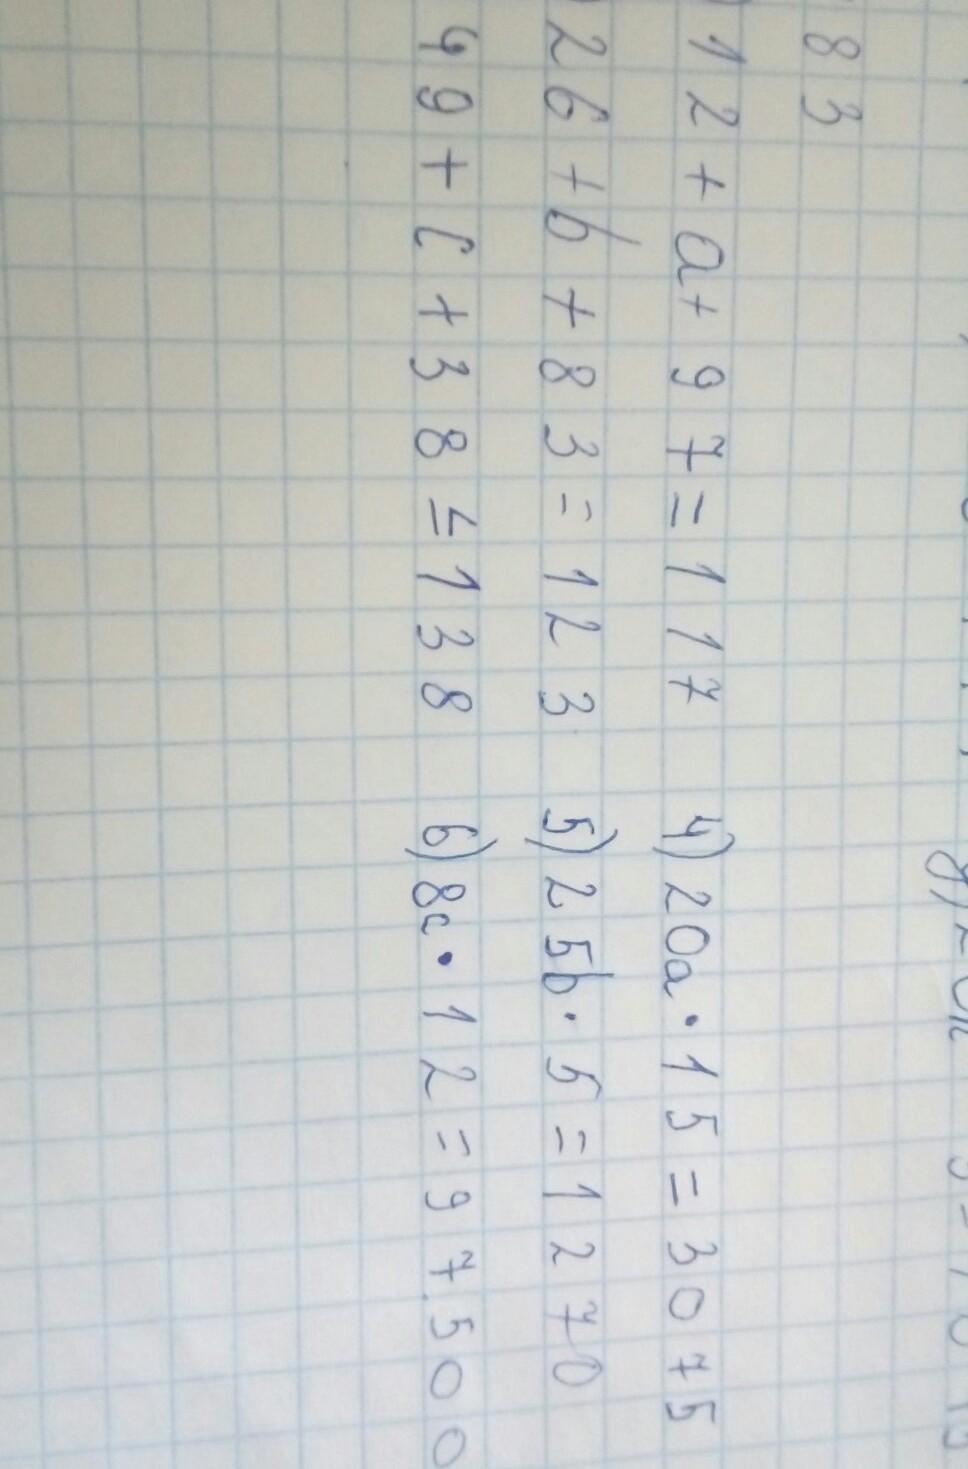 83
12+a+97=117 4) 20a·15=3075
26+b+83=123 5) 25b·5=1270
49+c+38=138 6) 8c·12=97500